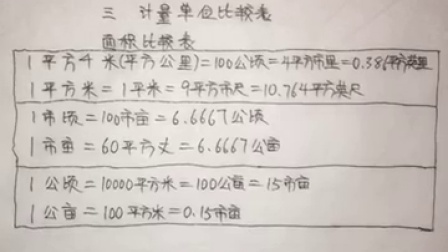 三 计量单位比较表
面积比较表
1平方千米(平方公里)=100公顷=4平方市里=0.386平方英里
1平方米=1平米=9平方市尺=10.764平方英尺
1市顷=100市亩=6.6667公顷
1市亩=60平方丈=6.6667公亩
1公顷=10000平方米=100公亩=15市亩
1公亩=100平方米=0.15市亩